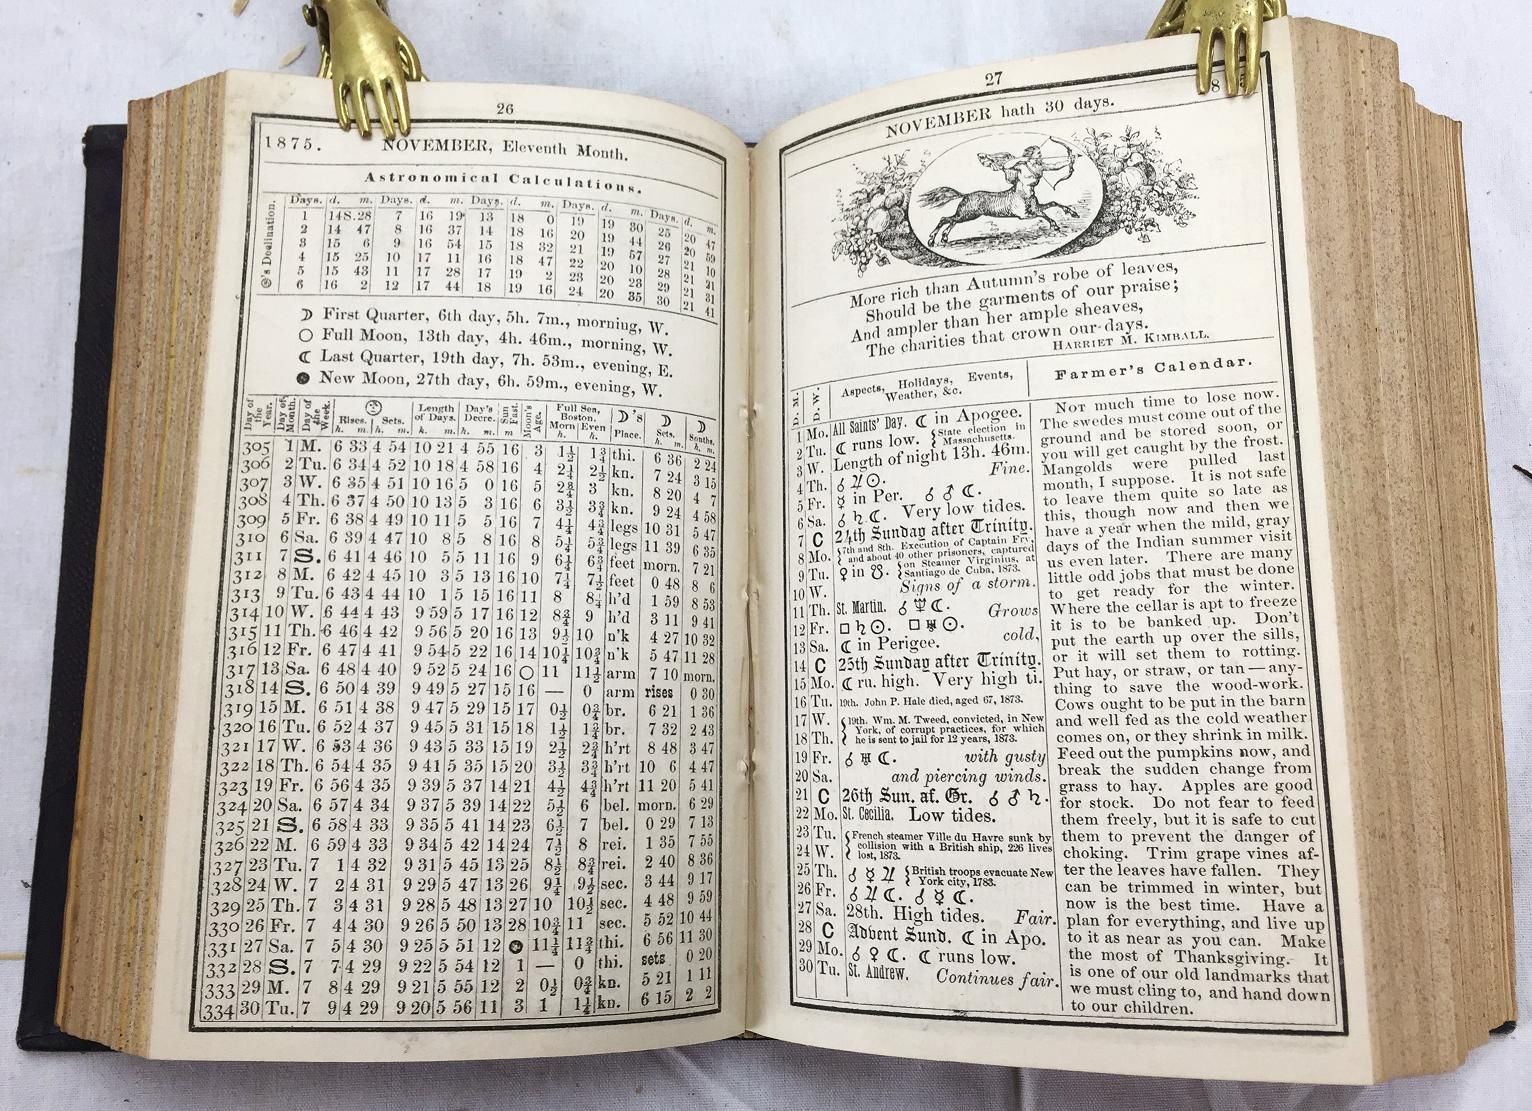 26
1875. NOVEMBER, Eleventh Month.
Astronomical Calculations.
☉'s Declination.
Days. d. m. Days. d. m. Days. d. m. Days. d. m. Days. d. m.
1 14S.28 7 16 19 13 18 0 19 19 30 25 20 47
2 14 47 8 16 37 14 18 16 20 19 44 26 20 59
3 15 6 9 16 54 15 18 32 21 19 57 27 21 10
4 15 25 10 17 11 16 18 47 22 20 10 28 21 21
5 15 43 11 17 28 17 19 2 23 20 23 29 21 31
6 16 2 12 17 44 18 19 16 24 20 35 30 21 41
☽ First Quarter, 6th day, 5h. 7m., morning, W.
○ Full Moon, 13th day, 4h. 46m., morning, W.
☾ Last Quarter, 19th day, 7h. 53m., evening, E.
● New Moon, 27th day, 6h. 59m., evening, W.
Day of the Year. Day of Month. Day of the Week. ☉ Rises. h. m. Sets. h. m. Length of Days. h. m. Day's Decre. h. m. Sun Fast. m Moon's Age. Full Sea, Boston. Morn h. Even h. ☽'s Place. ☽ Sets. h. m. ☽ Souths. h. m.
305 1 M. 6 33 4 54 10 21 4 55 16 3 1½ 1¾ thi. 6 36 2 24
306 2 Tu. 6 34 4 52 10 18 4 58 16 4 2¼ 2½ kn. 7 24 3 15
307 3 W. 6 35 4 51 10 16 5 0 16 5 2¾ 3 kn. 8 20 4 7
308 4 Th. 6 37 4 50 10 13 5 3 16 6 3½ 3¾ kn. 9 24 4 58
309 5 Fr. 6 38 4 49 10 11 5 5 16 7 4¼ 4¾ legs 10 31 5 47
310 6 Sa. 6 39 4 47 10 8 5 8 16 8 5¼ 5¾ legs 11 39 6 35
311 7 S. 6 41 4 46 10 5 5 11 16 9 6¼ 6¾ feet morn. 7 21
312 8 M. 6 42 4 45 10 3 5 13 16 10 7¼ 7½ feet 0 48 8 6
313 9 Tu. 6 43 4 44 10 1 5 15 16 11 8 8¼ h'd 1 59 8 53
314 10 W. 6 44 4 43 9 59 5 17 16 12 8¾ 9 h'd 3 11 9 41
315 11 Th. 6 46 4 42 9 56 5 20 16 13 9½ 10 n'k 4 27 10 32
316 12 Fr. 6 47 4 41 9 54 5 22 16 14 10¼ 10¾ n'k 5 47 11 28
317 13 Sa. 6 48 4 40 9 52 5 24 16 ○ 11 11½ arm 7 10 morn.
318 14 S. 6 50 4 39 9 49 5 27 15 16 — 0 arm rises 0 30
319 15 M. 6 51 4 38 9 47 5 29 15 17 0½ 0¾ br. 6 21 1 36
320 16 Tu. 6 52 4 37 9 45 5 31 15 18 1½ 1¾ br. 7 32 2 43
321 17 W. 6 53 4 36 9 43 5 33 15 19 2½ 2¾ h'rt 8 48 3 47
322 18 Th. 6 54 4 35 9 41 5 35 15 20 3½ 3¾ h'rt 10 6 4 47
323 19 Fr. 6 56 4 35 9 39 5 37 14 21 4½ 4¾ h'rt 11 20 5 41
324 20 Sa. 6 57 4 34 9 37 5 39 14 22 5½ 6 bel. morn. 6 29
325 21 S. 6 58 4 33 9 35 5 41 14 23 6½ 7 bel. 0 29 7 13
326 22 M. 6 59 4 33 9 34 5 42 14 24 7½ 8 rei. 1 35 7 55
327 23 Tu. 7 1 4 32 9 31 5 45 13 25 8½ 8¾ rei. 2 40 8 36
328 24 W. 7 2 4 31 9 29 5 47 13 26 9¼ 9½ sec. 3 44 9 17
329 25 Th. 7 3 4 31 9 28 5 48 13 27 10 10½ sec. 4 48 9 59
330 26 Fr. 7 4 4 30 9 26 5 50 13 28 10¾ 11 sec. 5 52 10 44
331 27 Sa. 7 5 4 30 9 25 5 51 12 ● 11¼ 11¾ thi. 6 56 11 30
332 28 S. 7 7 4 29 9 22 5 54 12 1 — 0 thi. sets 0 20
333 29 M. 7 8 4 29 9 21 5 55 12 2 0½ 0¾ kn. 5 21 1 11
334 30 Tu. 7 9 4 29 9 20 5 56 11 3 1 1¼ kn. 6 15 2 2
27
NOVEMBER hath 30 days.
More rich than Autumn's robe of leaves,
Should be the garments of our praise;
And ampler than her ample sheaves,
The charities that crown our days.
HARRIET M. KIMBALL.
D. M. D. W. Aspects, Holidays, Events, Weather, &c.
1 Mo. All Saints' Day. ☾ in Apogee.
2 Tu. ☾ runs low. {State election in Massachusetts.
3 W. Length of night 13h. 46m.
4 Th. ☌ ♃ ☉. Fine.
5 Fr. ☿ in Per. ☌ ♂ ☾.
6 Sa. ☌ ♄ ☾. Very low tides.
7 C 24th Sunday after Trinity.
8 Mo. {7th and 8th. Execution of Captain Fry and about 40 other prisoners, captured
9 Tu. ♀ in ☋. {on Steamer Virginius, at Santiago de Cuba, 1873.
10 W. Signs of a storm.
11 Th. St. Martin. ☌ ♆ ☾. Grows
12 Fr. □ ♄ ☉. □ ♅ ☉. cold,
13 Sa. ☾ in Perigee.
14 C 25th Sunday after Trinity.
15 Mo. ☾ ru. high. Very high ti.
16 Tu. 19th. John P. Hale died, aged 67, 1873.
17 W. {19th. Wm. M. Tweed, convicted, in New
18 Th. York, of corrupt practices, for which he is sent to jail for 12 years, 1873.
19 Fr. ☌ ♅ ☾. with gusty
20 Sa. and piercing winds.
21 C 26th Sun. af. Tr. ☌ ♂ ♄.
22 Mo. St. Cecilia. Low tides.
23 Tu. {French steamer Ville du Havre sunk by
24 W. collision with a British ship, 226 lives lost, 1873.
25 Th. ☌ ☿ ♃ {British troops evacuate New York city, 1783.
26 Fr. ☌ ♃ ☾. ☌ ☿ ☾.
27 Sa. 28th. High tides. Fair.
28 C Advent Sund. ☾ in Apo.
29 Mo. ☌ ♀ ☾. ☾ runs low.
30 Tu. St. Andrew. Continues fair.
Farmer's Calendar.
NOT much time to lose now.
The swedes must come out of the
ground and be stored soon, or
you will get caught by the frost.
Mangolds were pulled last
month, I suppose. It is not safe
to leave them quite so late as
this, though now and then we
have a year when the mild, gray
days of the Indian summer visit
us even later. There are many
little odd jobs that must be done
to get ready for the winter.
Where the cellar is apt to freeze
it is to be banked up. Don't
put the earth up over the sills,
or it will set them to rotting.
Put hay, or straw, or tan — any-
thing to save the wood-work.
Cows ought to be put in the barn
and well fed as the cold weather
comes on, or they shrink in milk.
Feed out the pumpkins now, and
break the sudden change from
grass to hay. Apples are good
for stock. Do not fear to feed
them freely, but it is safe to cut
them to prevent the danger of
choking. Trim grape vines af-
ter the leaves have fallen. They
can be trimmed in winter, but
now is the best time. Have a
plan for everything, and live up
to it as near as you can. Make
the most of Thanksgiving. It
is one of our old landmarks that
we must cling to, and hand down
to our children.